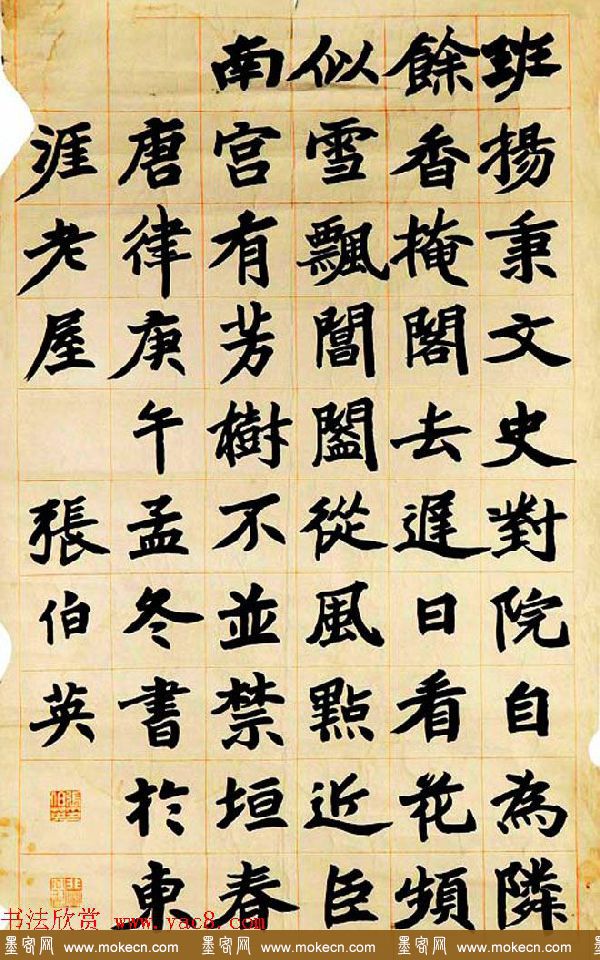 班揚秉文史對院自為隣
餘香掩閣去遲日看花頻
似雪飄閶闔從風點近臣
南宮有芳樹不並禁垣春
唐律庚午孟冬書於東
涯老屋 張伯英
书法欣赏 www.yac8.com
墨客网 www.mokecn.com 墨客网 www.mokecn.com 墨客网 www.mokecn.com